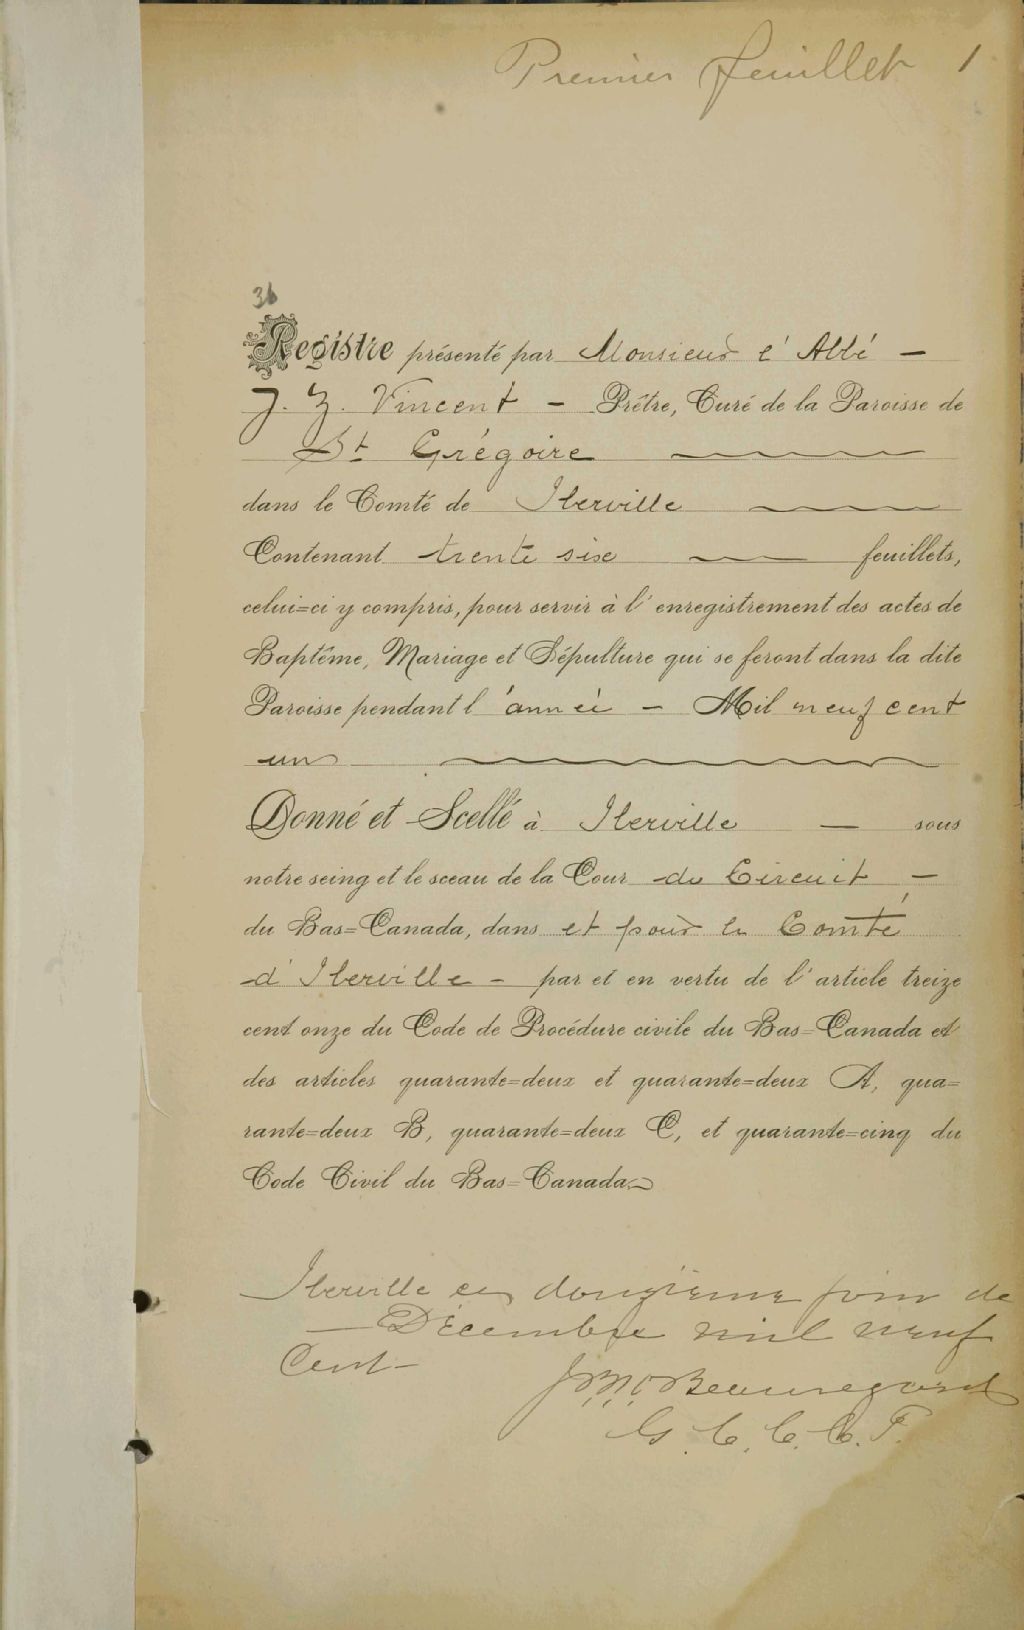 Premier feuillet 1
36
Registre présenté par Monsieur l'Abbé —
J. Z. Vincent — Prêtre, Curé de la Paroisse de
St Grégoire
dans le Comté de Iberville
Contenant trente six feuillets,
celui=ci y compris, pour servir à l'enregistrement des actes de
Baptême, Mariage et Sépulture qui se feront dans la dite
Paroisse pendant l'année — Mil neuf cent
un
Donné et Scellé à Iberville — sous
notre seing et le sceau de la Cour de Circuit —
du Bas=Canada, dans et pour le Comté
d'Iberville — par et en vertu de l'article treize
cent onze du Code de Procédure civile du Bas=Canada et
des articles quarante=deux et quarante=deux A, qua=
rante=deux B, quarante=deux C, et quarante=cinq du
Code Civil du Bas=Canada.
Iberville ce douzième jour de
— Décembre mil neuf
Cent —
Beauregard
G. C. C. C. I.